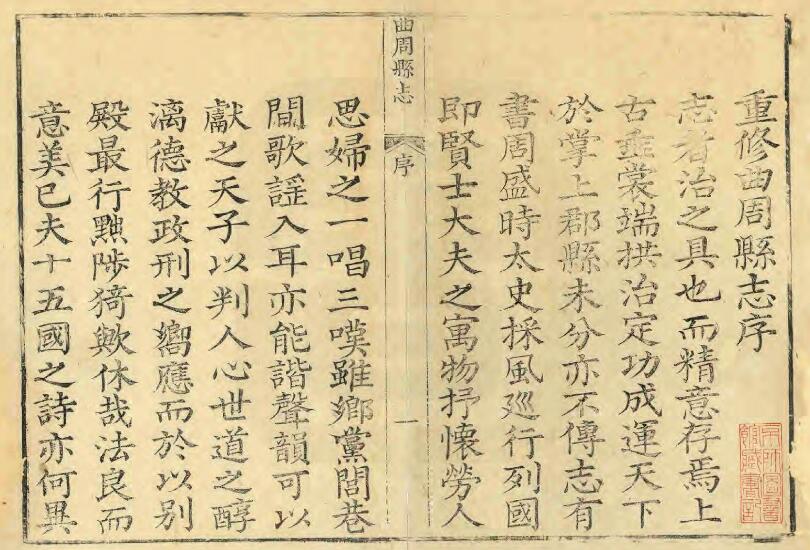 重修曲周縣志序
志者治之具也而精意存焉上
古垂裳端拱治定功成運天下
於掌上郡縣未分亦不傳志有
書周盛時太史採風廵行列國
即賢士大夫之寓物抒懷勞人
曲周縣志
序
一
思婦之一唱三嘆雖鄉黨閭巷
間歌謡入耳亦能諧聲韻可以
獻之天子以判人心世道之醇
漓德教政刑之嚮應而於以別
殿最行黜陟猗歟休哉法良而
意美已夫十五國之詩亦何異